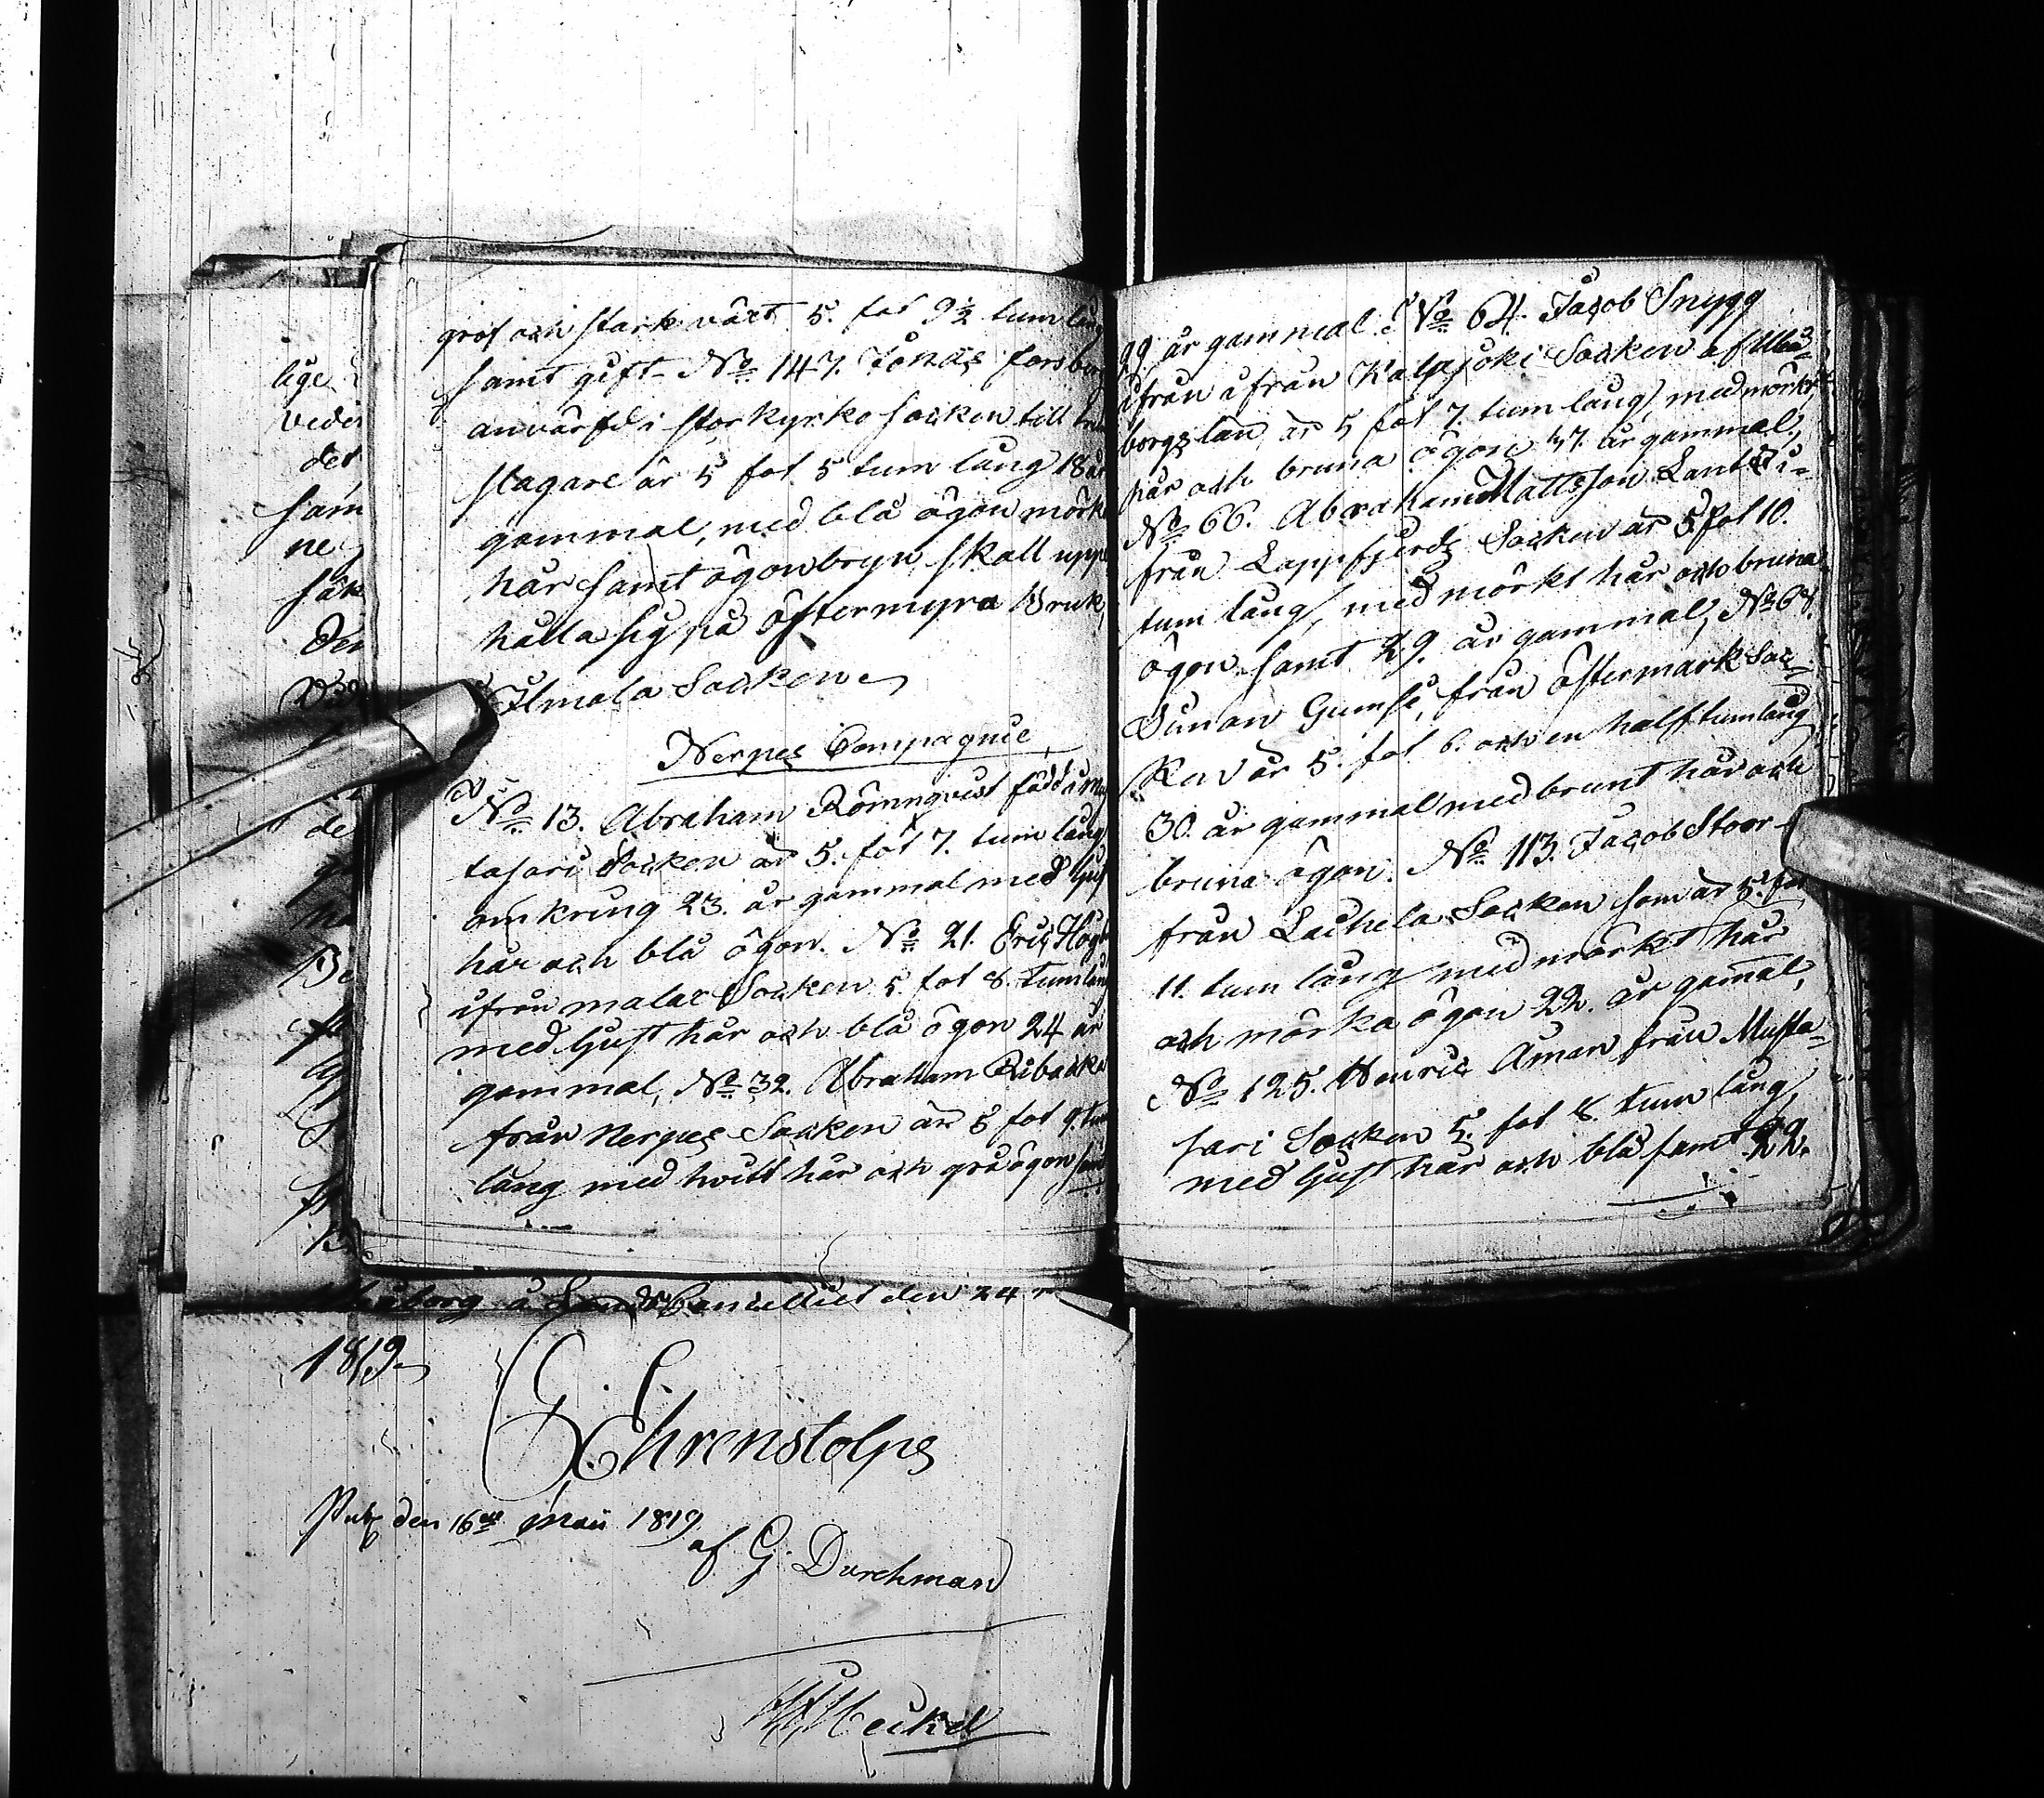 grof och stark växt 5. fot 9½ tum lång
samt gift. No 147. Jonas Forsberg
anvärfd i storkyrko Socken till
slagare är 5 fot 5 tum lång 18 år
gammal, med blå ögon mörkt
hår samt ögonbryn, skall uppe
hålla sig på Östermyra Bruk,
Ilmola Socken
Nerpes Compagnie
No 13. Abraham Römnqvist född i Mus
tasari Socken är 5. fot 7. tum lång
omkring 23. år gammal med ljust
hår och blå ögon. No 21. Eric Hög
ifrån malax Socken 5 fot 8. tum lång
med ljust hår och blå ögon 24 år
gammal, No 32. Abraham Ribacka
från Nerpes Socken är 5 fot 9. tum
lång med hvitt hår och grå ögon samt
29 år gammal. No 64. Jacob Snygg
ifrån ifrån Kalajoki Socken af Uleå-
borgs län, är 5 fot 7. tum lång, med mörkt
hår och bruna ögon 47. år gammal,
No 66. Abraham Mattsson Lant i-
från Lappfjerds Socken är 5 fot 10.
tum lång, med mörkt hår och bruna
ögon samt 29. år gammal, No 68.
Simon Gumse, från Östermark Soc-
ken är 5. fot 6. och en half tum lång
30. år gammal med brunt hår och
bruna ögon. No 113. Jacob Stoor
från Laihela Socken som är 5. fot
11. tum lång med mörkt hår
och mörka ögon 22. år gamal,
No 125. Henric Åman från Musta-
sari Socken 5. fot 8. tum lång,
med ljust hår och blå samt 22.
lige
det
sam
ne
Den
de
Uleåborg å Lands Cancelliet den 24
1819.
G. Ehrenstolpe
Publ. den 16de Maii 1819
af G. Durchman